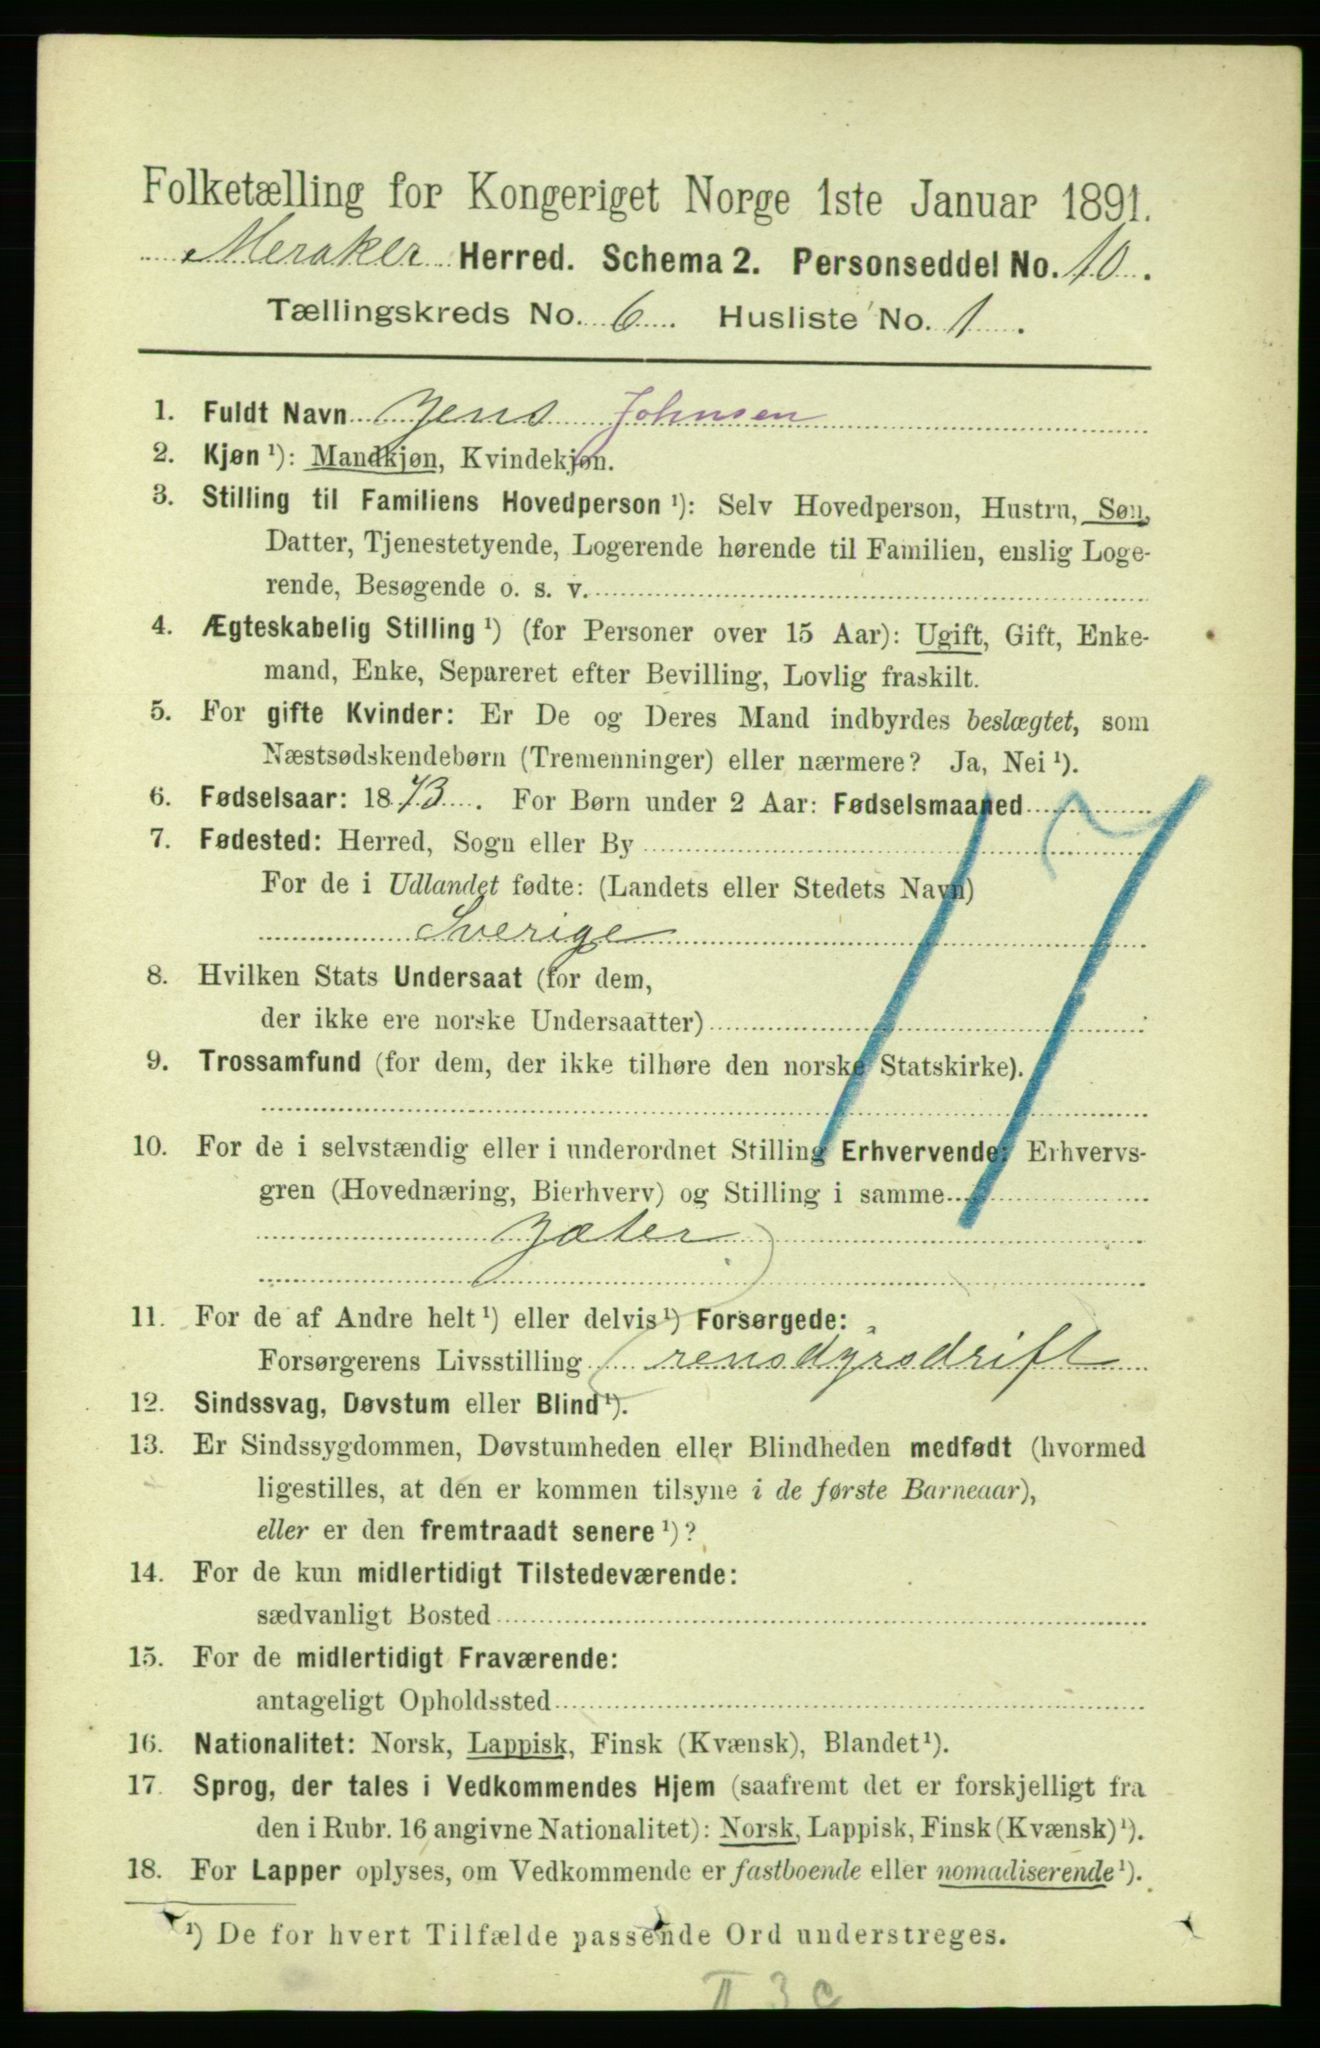 Folketælling for Kongeriget Norge 1ste Januar 1891.
Meraker Herred. Schema 2. Personseddel No. 10.
Tællingskreds No. 6. Husliste No. 1.
1. Fuldt Navn Jens Johnsen
2. Kjøn ¹): Mandkjøn, Kvindekjøn.
3. Stilling til Familiens Hovedperson ¹): Selv Hovedperson, Hustru, Søn,
Datter, Tjenestetyende, Logerende hørende til Familien, enslig Loge-
rende, Besøgende o. s. v.
4. Ægteskabelig Stilling ¹) (for Personer over 15 Aar): Ugift, Gift, Enke-
mand, Enke, Separeret efter Bevilling, Lovlig fraskilt.
5. For gifte Kvinder: Er De og Deres Mand indbyrdes beslægtet, som
Næstsødskendebørn (Tremenninger) eller nærmere? Ja, Nei ¹).
6. Fødselsaar: 1873. For Børn under 2 Aar: Fødselsmaaned
7. Fødested: Herred, Sogn eller By
For de i Udlandet fødte: (Landets eller Stedets Navn)
Sverige
8. Hvilken Stats Undersaat (for dem,
der ikke ere norske Undersaatter)
9. Trossamfund (for dem, der ikke tilhøre den norske Statskirke).
10. For de i selvstændig eller i underordnet Stilling Erhvervende: Erhvervs-
gren (Hovednæring, Bierhverv) og Stilling i samme
Jæter
11. For de af Andre helt ¹) eller delvis ¹) Forsørgede:
Forsørgerens Livsstilling rensdyrsdrift
12. Sindssvag, Døvstum eller Blind ¹).
13. Er Sindssygdommen, Døvstumheden eller Blindheden medfødt (hvormed
ligestilles, at den er kommen tilsyne i de første Barneaar),
eller er den fremtraadt senere ¹)?
14. For de kun midlertidigt Tilstedeværende:
sædvanligt Bosted
15. For de midlertidigt Fraværende:
antageligt Opholdssted
16. Nationalitet: Norsk, Lappisk, Finsk (Kvænsk), Blandet ¹).
17. Sprog, der tales i Vedkommendes Hjem (saafremt det er forskjelligt fra
den i Rubr. 16 angivne Nationalitet): Norsk, Lappisk, Finsk (Kvænsk) ¹).
18. For Lapper oplyses, om Vedkommende er fastboende eller nomadiserende ¹).
¹) De for hvert Tilfælde passende Ord understreges.
II 3 c